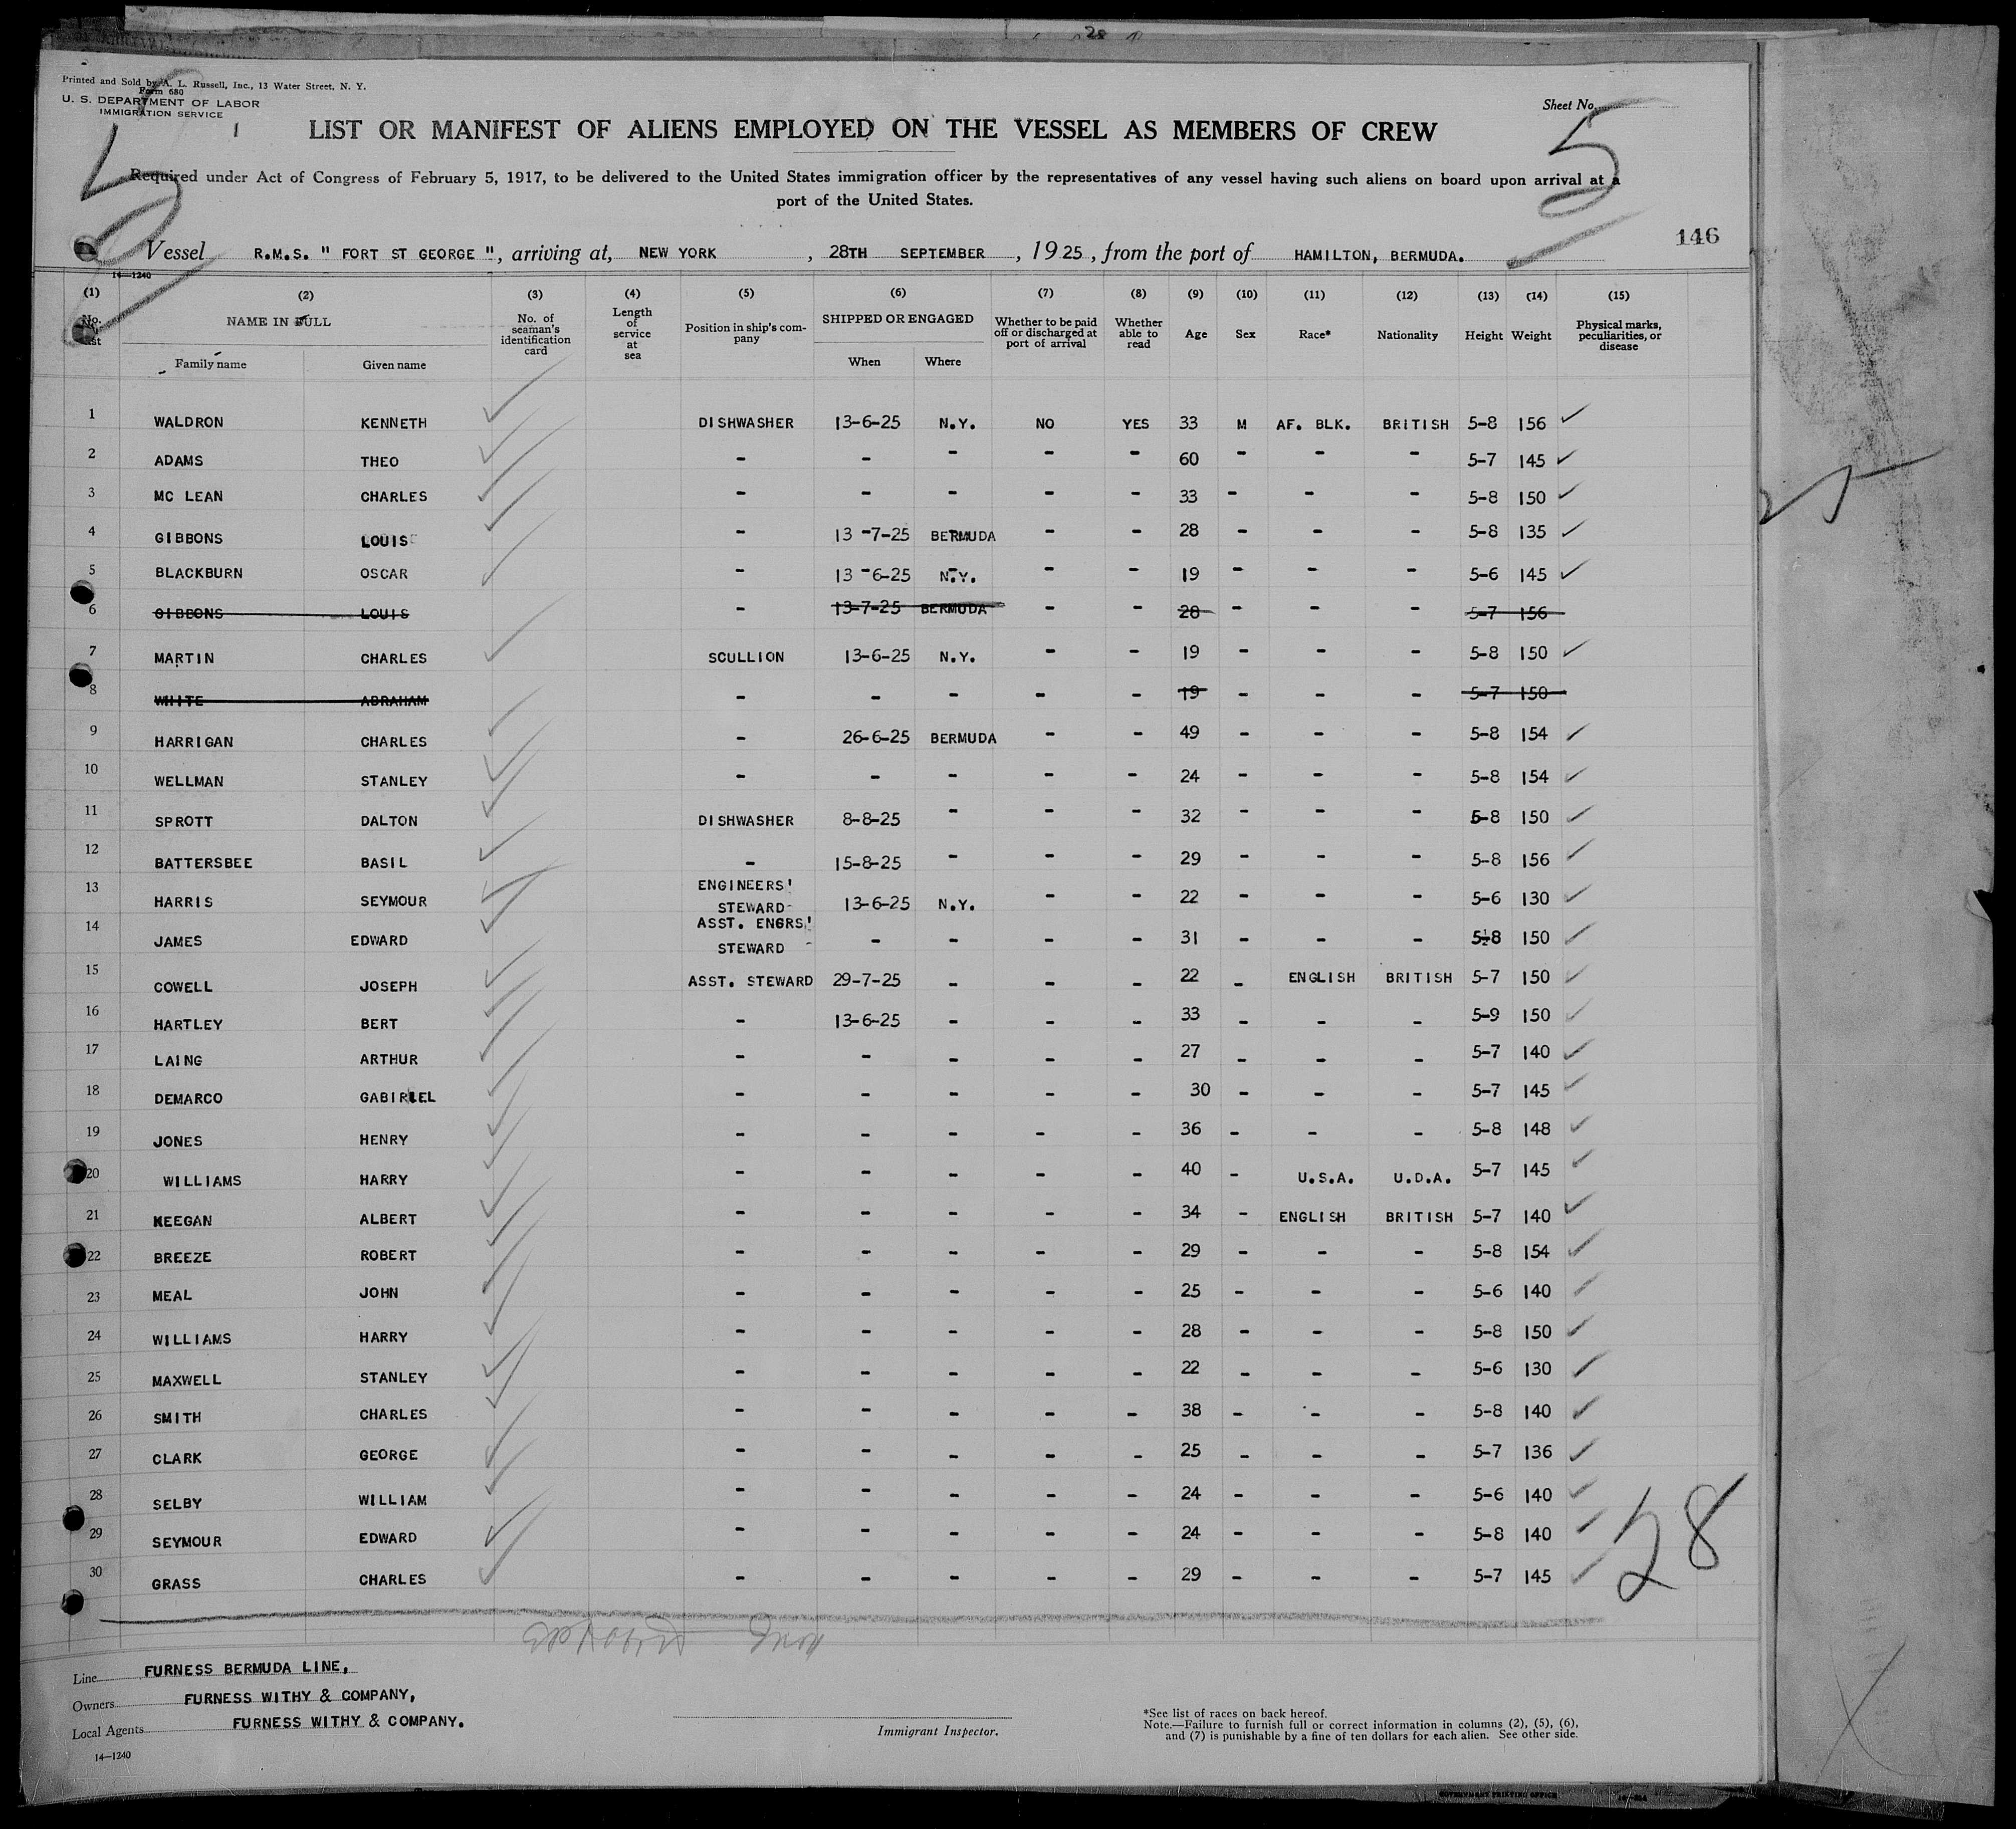 28
Printed and Sold by A. L. Russell, Inc., 13 Water Street, N. Y.
Form 680
U. S. DEPARTMENT OF LABOR
IMMIGRATION SERVICE
Sheet No. 5
5
LIST OR MANIFEST OF ALIENS EMPLOYED ON THE VESSEL AS MEMBERS OF CREW
Required under Act of Congress of February 5, 1917, to be delivered to the United States immigration officer by the representatives of any vessel having such aliens on board upon arrival at a
port of the United States.
146
Vessel R.M.S. " FORT ST GEORGE ", arriving at, NEW YORK , 28TH SEPTEMBER , 1925, from the port of HAMILTON, BERMUDA.
14—1240
(1) (2) (3) (4) (5) (6) (7) (8) (9) (10) (11) (12) (13) (14) (15)
No. list NAME IN FULL Family name Given name No. of seaman's identification card Length of service at sea Position in ship's company SHIPPED OR ENGAGED When Where Whether to be paid off or discharged at port of arrival Whether able to read Age Sex Race* Nationality Height Weight Physical marks, peculiarities, or disease
1 WALDRON KENNETH DISHWASHER 13-6-25 N.Y. NO YES 33 M AF. BLK. BRITISH 5-8 156
2 ADAMS THEO - - - - - 60 - - - 5-7 145
3 MC LEAN CHARLES - - - - - 33 - - - 5-8 150
4 GIBBONS LOUIS - 13-7-25 BERMUDA - - 28 - - - 5-8 135
5 BLACKBURN OSCAR - 13-6-25 N.Y. - - 19 - - - 5-6 145
6 GIBBONS LOUIS - 13-7-25 BERMUDA - - 28 - - - 5-7 156
7 MARTIN CHARLES SCULLION 13-6-25 N.Y. - - 19 - - - 5-8 150
8 WHITE ABRAHAM - - - - - 19 - - - 5-7 150
9 HARRIGAN CHARLES - 26-6-25 BERMUDA - - 49 - - - 5-8 154
10 WELLMAN STANLEY - - - - - 24 - - - 5-8 154
11 SPROTT DALTON DISHWASHER 8-8-25 - - - 32 - - - 5-8 150
12 BATTERSBEE BASIL - 15-8-25 - - - 29 - - - 5-8 156
13 HARRIS SEYMOUR ENGINEERS' STEWARD 13-6-25 N.Y. - - 22 - - - 5-6 130
14 JAMES EDWARD ASST. ENGRS' STEWARD - - - - 31 - - - 5-8 150
15 COWELL JOSEPH ASST. STEWARD 29-7-25 - - - 22 - ENGLISH BRITISH 5-7 150
16 HARTLEY BERT - 13-6-25 - - - 33 - - - 5-9 150
17 LAING ARTHUR - - - - - 27 - - - 5-7 140
18 DEMARCO GABIRLEL - - - - - 30 - - - 5-7 145
19 JONES HENRY - - - - - 36 - - - 5-8 148
20 WILLIAMS HARRY - - - - - 40 - U.S.A. U.D.A. 5-7 145
21 KEEGAN ALBERT - - - - - 34 - ENGLISH BRITISH 5-7 140
22 BREEZE ROBERT - - - - - 29 - - - 5-8 154
23 MEAL JOHN - - - - - 25 - - - 5-6 140
24 WILLIAMS HARRY - - - - - 28 - - - 5-8 150
25 MAXWELL STANLEY - - - - - 22 - - - 5-6 130
26 SMITH CHARLES - - - - - 38 - - - 5-8 140
27 CLARK GEORGE - - - - - 25 - - - 5-7 136
28 SELBY WILLIAM - - - - - 24 - - - 5-6 140
29 SEYMOUR EDWARD - - - - - 24 - - - 5-8 140
30 GRASS CHARLES - - - - - 29 - - - 5-7 145
28
Line FURNESS BERMUDA LINE,
Owners FURNESS WITHY & COMPANY,
Local Agents FURNESS WITHY & COMPANY.
14—1240
Immigrant Inspector.
*See list of races on back hereof.
Note.—Failure to furnish full or correct information in columns (2), (5), (6),
and (7) is punishable by a fine of ten dollars for each alien. See other side.
GOVERNMENT PRINTING OFFICE